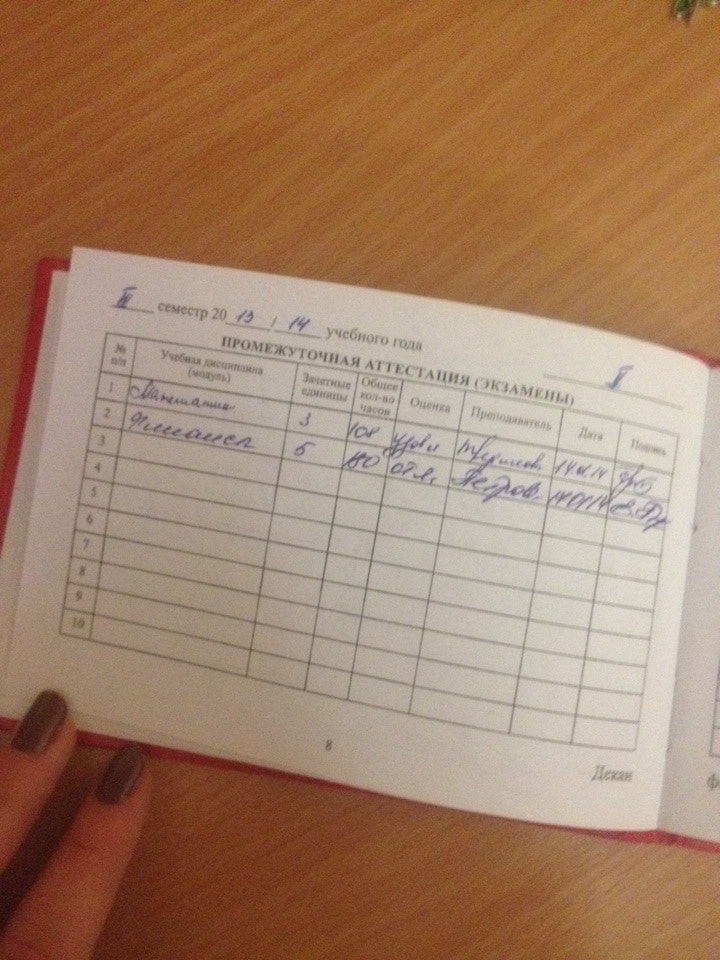 III семестр 20 13 / 14 учебного года
II
ПРОМЕЖУТОЧНАЯ АТТЕСТАЦИЯ (ЭКЗАМЕНЫ)
№ п/п Учебная дисциплина (модуль) Зачетные единицы Общее кол-во часов Оценка Преподаватель Дата Подпись
1 Математика 3 108 удовл 14 01 14
2 Финансы 5 180 отл. Петров 14 01 14
3
4
5
6
7
8
9
10
8
Декан